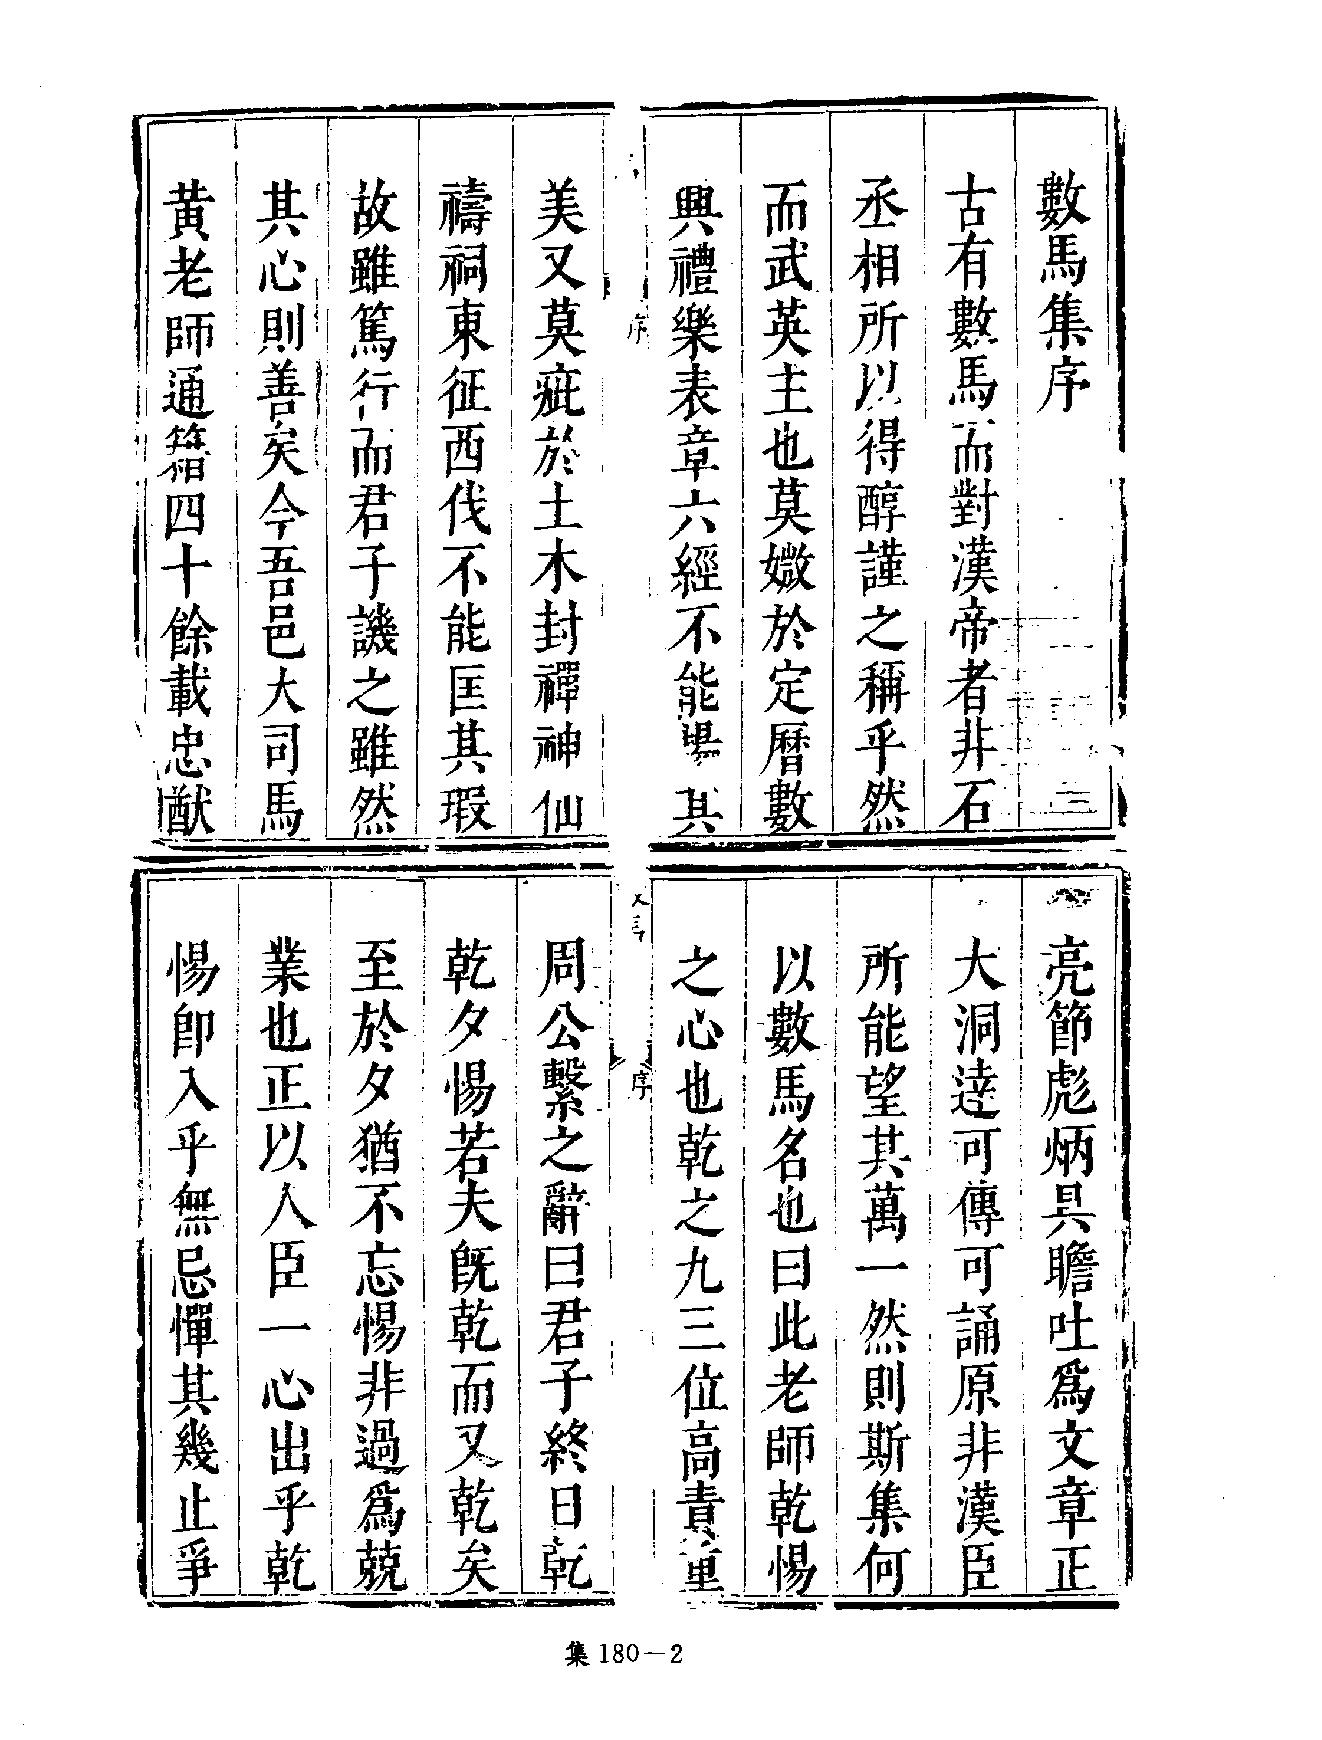 數馬集序
古有數馬而對漢帝者非石
丞相所以得醇謹之稱乎然
而武英主也莫媺於定曆數
興禮樂表章六經不能揚其
序
美又莫疵於土木封禪神仙
禱祠東征西伐不能匡其瑕
故雖篤行而君子譏之雖然
其心則善矣今吾邑大司馬
黃老師通籍四十餘載忠猷
亮節彪炳具瞻吐爲文章正
大洞達可傳可誦原非漢臣
所能望其萬一然則斯集何
以數馬名也曰此老師乾惕
之心也乾之九三位高責重
序
周公繫之辭曰君子終日乾
乾夕惕若夫旣乾而又乾矣
至於夕猶不忘惕非過爲兢
業也正以人臣一心出乎乾
惕卽入乎無忌憚其幾止爭
集180－2